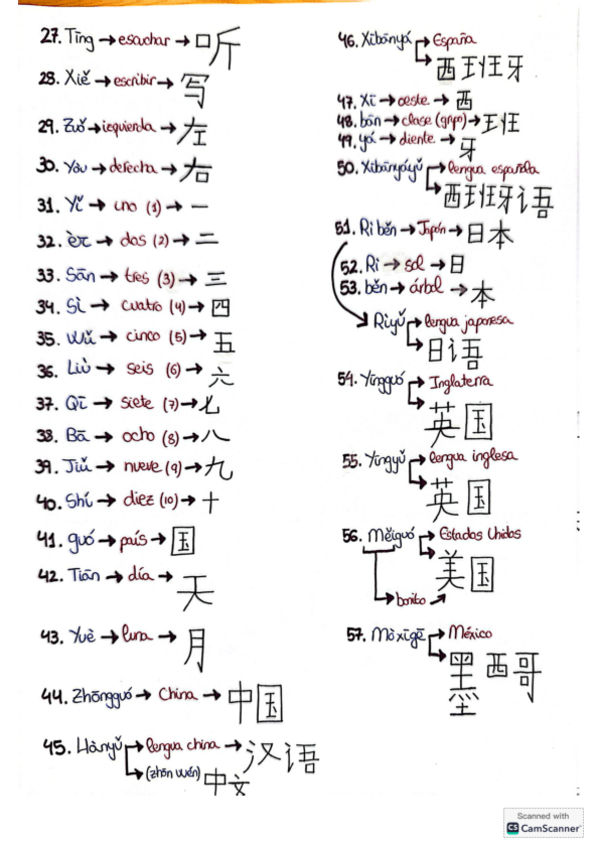 27. Tīng → escuchar → 听
28. Xiě → escribir → 写
29. Zuǒ → izquierda → 左
30. Yòu → derecha → 右
31. Yī → uno (1) → 一
32. èr → dos (2) → 二
33. Sān → tres (3) → 三
34. Sì → cuatro (4) → 四
35. Wǔ → cinco (5) → 五
36. Liù → seis (6) → 六
37. Qī → siete (7) → 七
38. Bā → ocho (8) → 八
39. Jiǔ → nueve (9) → 九
40. Shí → diez (10) → 十
41. guó → país → 国
42. Tiān → día → 天
43. Yuè → luna → 月
44. Zhōngguó → China → 中国
45. Hànyǔ → lengua china → 汉语
(zhōn wén) 中文
46. Xībānyá → España
→ 西班牙
47. Xī → oeste → 西
48. bān → clase (grupo) → 班
49. yá → diente → 牙
50. Xībānyáyǔ → lengua española
→ 西班牙语
51. Rì běn → Japón → 日本
52. Rì → sol → 日
53. běn → árbol → 本
Rìyǔ → lengua japonesa
→ 日语
54. Yīngguó → Inglaterra
→ 英国
55. Yīngyǔ → lengua inglesa
→ 英国
56. Měiguó → Estados Unidos
→ 美国
→ bonito
57. Mòxīgē → México
→ 墨西哥
Scanned with
CS CamScanner